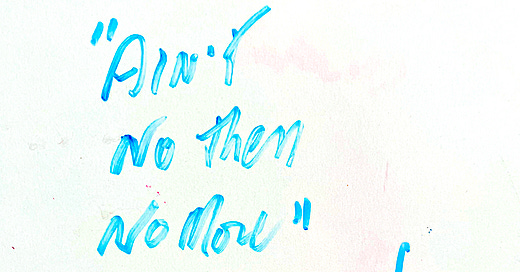 "Ain't
No then
No More"